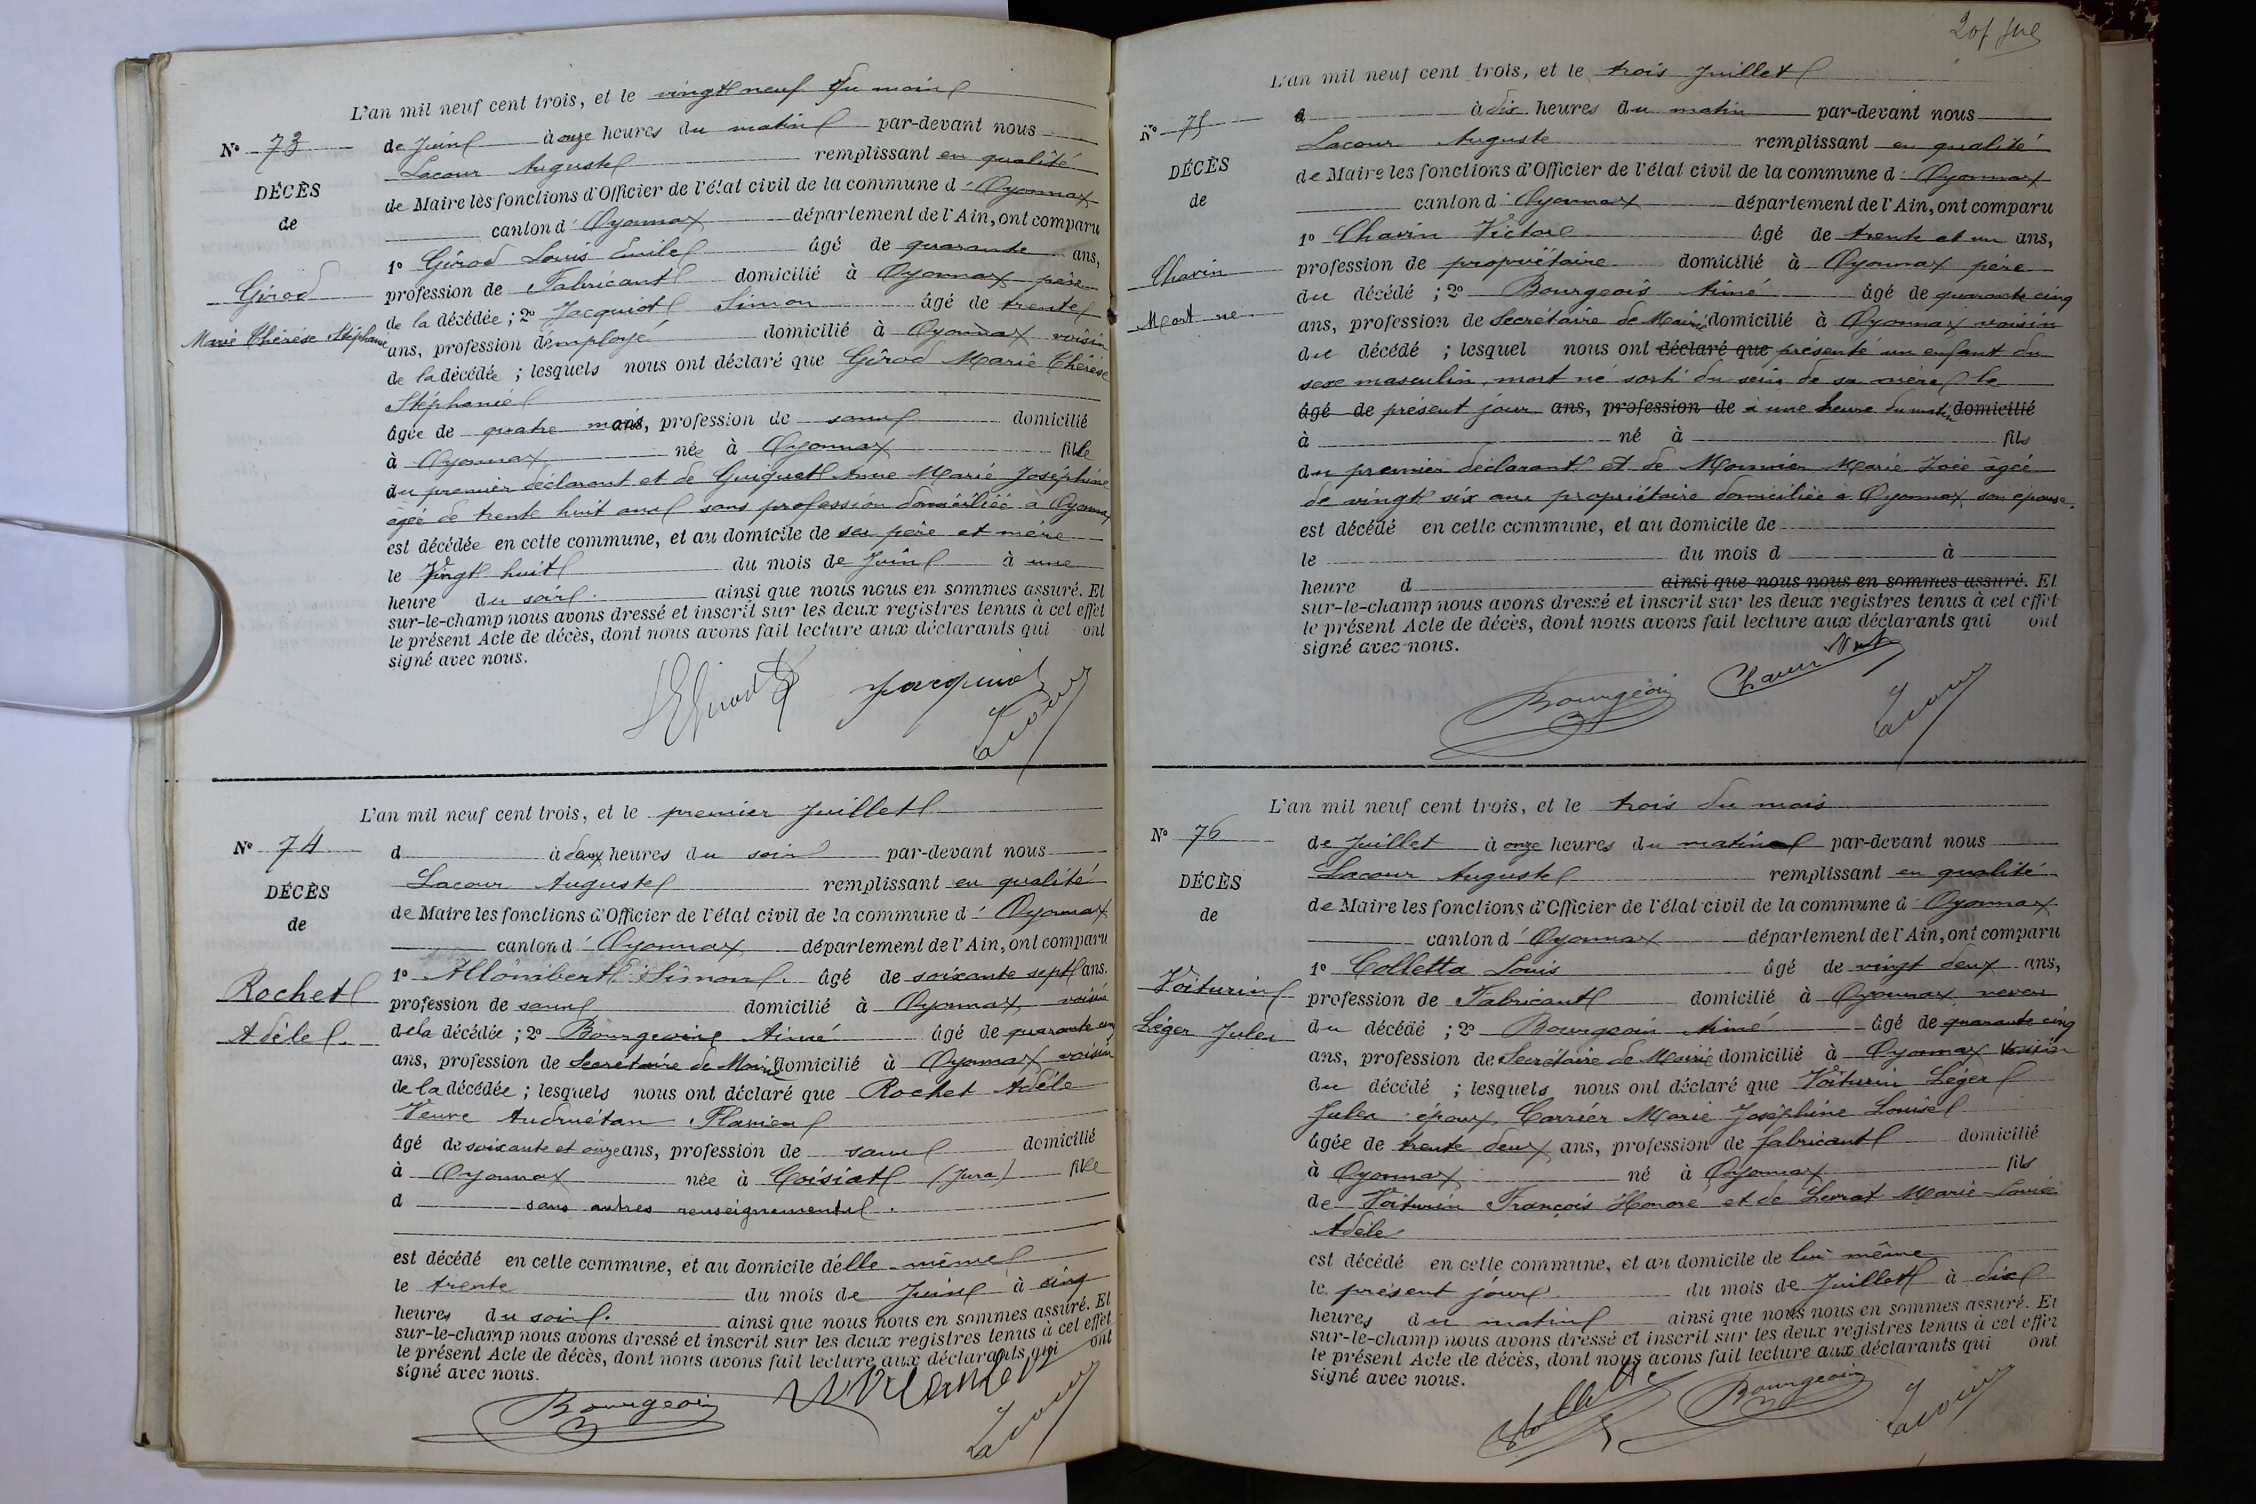 L'an mil neuf cent trois, et le vingt neuf du mois
N° 73
de Juin à onze heures du matin par-devant nous
Lacour Auguste remplissant en qualité
DÉCÈS
de Maire les fonctions d'Officier de l'état civil de la commune d'Oyonnax
de
canton d'Oyonnax département de l'Ain, ont comparu
1° Girod Louis Emile âgé de quarante ans,
Girod
profession de Fabricant domicilié à Oyonnax père
de la décédée ; 2° Jacquiot Simon âgé de trente
Marie Thérèse Stéphanie
ans, profession d'employé domicilié à Oyonnax voisin
de la décédée ; lesquels nous ont déclaré que Girod Marie Thérèse
Stéphanie
âgée de quatre mois, profession de sans domicilié
à Oyonnax née à Oyonnax fille
du premier déclarant et de Guiguet Anne Marie Joséphine
âgée de trente huit ans sans profession domiciliée à Oyonnax
est décédée en cette commune, et au domicile de ses père et mère
le Vingt huit du mois de Juin à une
heure du soir. ainsi que nous nous en sommes assuré. Et
sur-le-champ nous avons dressé et inscrit sur les deux registres tenus à cet effet
le présent Acte de décès, dont nous avons fait lecture aux déclarants qui ont
signé avec nous.
Jacquiot
Lacour
L'an mil neuf cent trois, et le premier Juillet
N° 74
d à deux heures du soir par-devant nous
Lacour Auguste remplissant en qualité
DÉCÈS
de Maire les fonctions d'Officier de l'état civil de la commune d'Oyonnax
de
canton d'Oyonnax département de l'Ain, ont comparu
1° Allombert Simon. âgé de soixante sept ans.
Rochet
profession de sans domicilié à Oyonnax voisin
Adèle.
de la décédée ; 2° Bourgeois Aimé âgé de quarante cinq
ans, profession de Secrétaire de Mairie domicilié à Oyonnax voisin
de la décédée ; lesquels nous ont déclaré que Rochet Adèle
Veuve Audruétan Flavien
âgé de soixante et onze ans, profession de sans domicilié
à Oyonnax née à Coisiat (Jura) fille
d sans autres renseignements.
est décédé en cette commune, et au domicile d'elle-même
le trente du mois de Juin à cinq
heures du soir. ainsi que nous nous en sommes assuré. Et
sur-le-champ nous avons dressé et inscrit sur les deux registres tenus à cet effet
le présent Acte de décès, dont nous avons fait lecture aux déclarants qui ont
signé avec nous.
Bourgeois
Lacour
L'an mil neuf cent trois, et le trois Juillet
N° 75
à à dix heures du matin par-devant nous
Lacour Auguste remplissant en qualité
DÉCÈS
de Maire les fonctions d'Officier de l'état civil de la commune d'Oyonnax
de
canton d'Oyonnax département de l'Ain, ont comparu
1° Chavin Victor âgé de trente et un ans,
Chavin
profession de propriétaire domicilié à Oyonnax père
du décédé ; 2° Bourgeois Aimé âgé de quarante cinq
Mort né
ans, profession de Secrétaire de Mairie domicilié à Oyonnax voisin
du décédé ; lesquel nous ont déclaré que présenté un enfant du
sexe masculin, mort né sorti du sein de sa mère le
âgé de présent jour ans, profession de à une heure du matin domicilié
à né à fils
du premier déclarant et de Mounier Marie Zoée âgée
de vingt six ans propriétaire domiciliée à Oyonnax, son épouse,
est décédé en cette commune, et au domicile de
le du mois d à
heure d ainsi que nous nous en sommes assuré. Et
sur-le-champ nous avons dressé et inscrit sur les deux registres tenus à cet effet
le présent Acte de décès, dont nous avons fait lecture aux déclarants qui ont
signé avec nous.
Bourgeois
Chavin Vict
Lacour
L'an mil neuf cent trois, et le trois du mois
N° 76
de Juillet à onze heures du matin par-devant nous
Lacour Auguste remplissant en qualité
DÉCÈS
de Maire les fonctions d'Officier de l'état civil de la commune d'Oyonnax
de
canton d'Oyonnax département de l'Ain, ont comparu
1° Colletta Louis âgé de vingt deux ans,
Voiturin
profession de Fabricant domicilié à Oyonnax neveu
Léger Jules
du décédé ; 2° Bourgeois Aimé âgé de quarante cinq
ans, profession de Secrétaire de Mairie domicilié à Oyonnax voisin
du décédé ; lesquels nous ont déclaré que Voiturin Léger
Jules époux Carrier Marie Joséphine Louise
âgée de trente deux ans, profession de fabricant domicilié
à Oyonnax né à Oyonnax fils
de Voiturin François Honoré et de Levrat Marie-Louise
Adèle
est décédé en cette commune, et au domicile de lui même
le présent jour du mois de Juillet à dix
heures du matin ainsi que nous nous en sommes assuré. Et
sur-le-champ nous avons dressé et inscrit sur les deux registres tenus à cet effet
le présent Acte de décès, dont nous avons fait lecture aux déclarants qui ont
signé avec nous.
Colletta
Bourgeois
Lacour